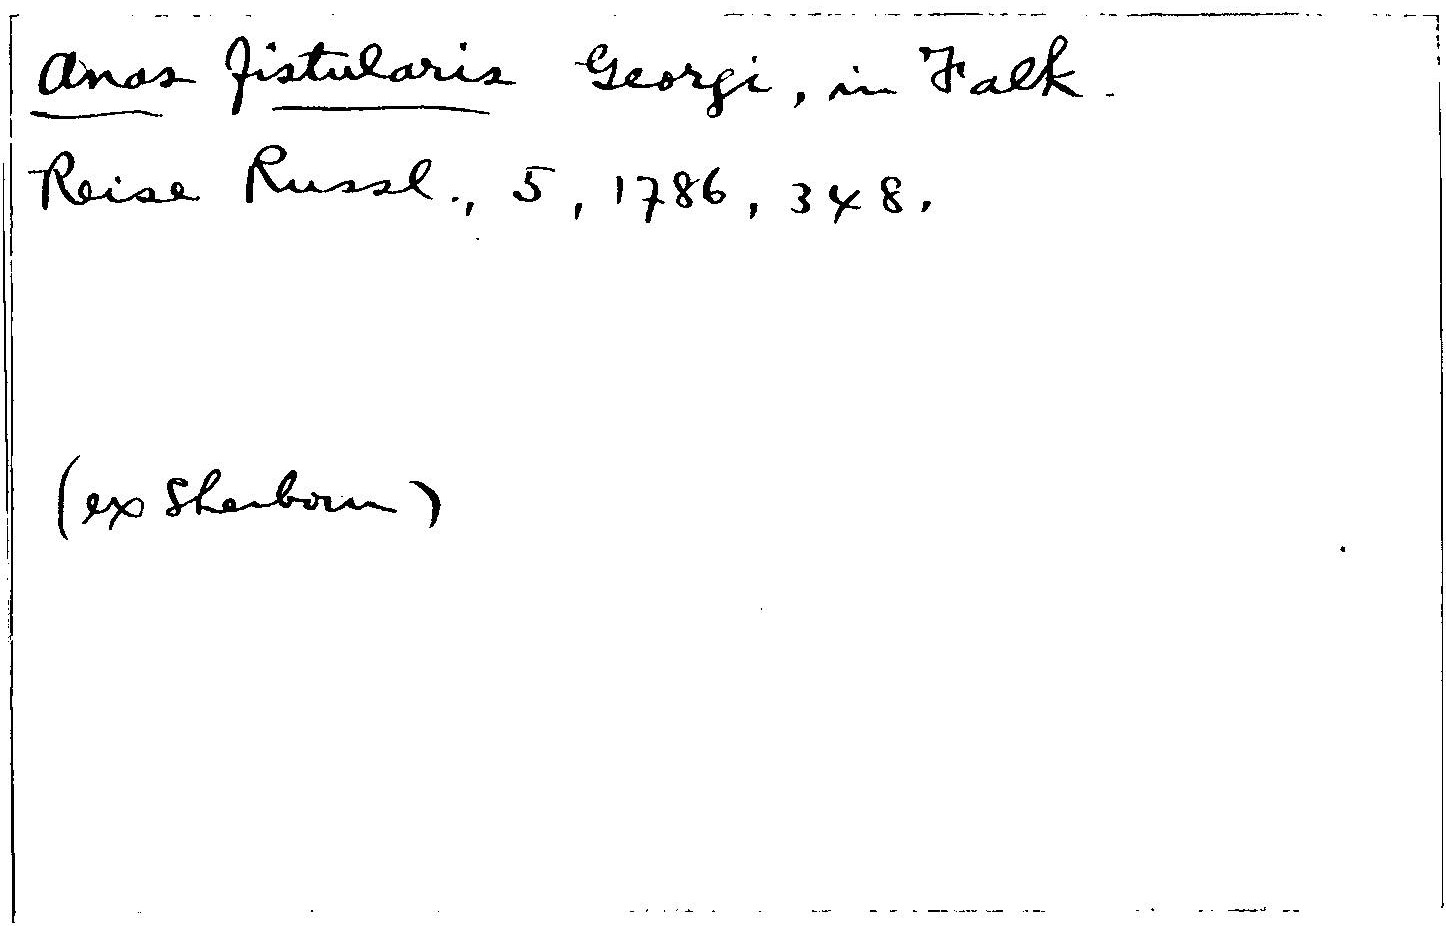 Anas fistularis Georgi, in Falk.
Reise Russl., 5, 1786, 348.
(ex Sherborn)